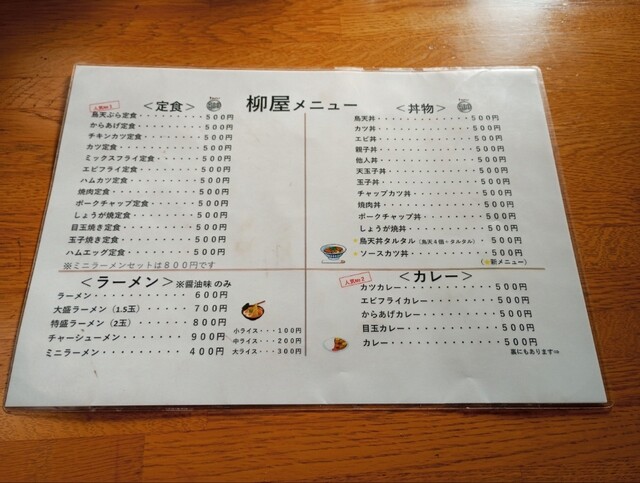 柳屋メニュー
＜定食＞
人気No.1
鳥天ぷら定食・・・・・・・・・500円
からあげ定食・・・・・・・・・500円
チキンカツ定食・・・・・・・・500円
カツ定食・・・・・・・・・・・500円
ミックスフライ定食・・・・・・500円
エビフライ定食・・・・・・・・500円
ハムカツ定食・・・・・・・・・500円
焼肉定食・・・・・・・・・・・500円
ポークチャップ定食・・・・・・500円
しょうが焼定食・・・・・・・・500円
目玉焼き定食・・・・・・・・・500円
玉子焼き定食・・・・・・・・・500円
ハムエッグ定食・・・・・・・・500円
※ミニラーメンセットは800円です
＜丼物＞
鳥天丼・・・・・・・・・・・・500円
カツ丼・・・・・・・・・・・・500円
エビ丼・・・・・・・・・・・・500円
親子丼・・・・・・・・・・・・500円
他人丼・・・・・・・・・・・・500円
天玉子丼・・・・・・・・・・・500円
玉子丼・・・・・・・・・・・・500円
チャップカツ丼・・・・・・・・500円
焼肉丼・・・・・・・・・・・・500円
ポークチャップ丼・・・・・・・500円
しょうが焼丼・・・・・・・・・500円
★鳥天丼タルタル（鳥天4個・タルタル）500円
★ソースカツ丼・・・・・・・・500円
(★新メニュー)
＜ラーメン＞※醤油味のみ
ラーメン・・・・・・・・・600円
大盛ラーメン（1.5玉）・・・・700円
特盛ラーメン（2玉）・・・・・800円
チャーシューメン・・・・・・900円
ミニラーメン・・・・・・・・400円
小ライス・・・100円
中ライス・・・200円
大ライス・・・300円
＜カレー＞
人気No.2
カツカレー・・・・・・・・・・500円
エビフライカレー・・・・・・・500円
からあげカレー・・・・・・・・500円
目玉カレー・・・・・・・・・・500円
カレー・・・・・・・・・・・・500円
裏にもあります⇒